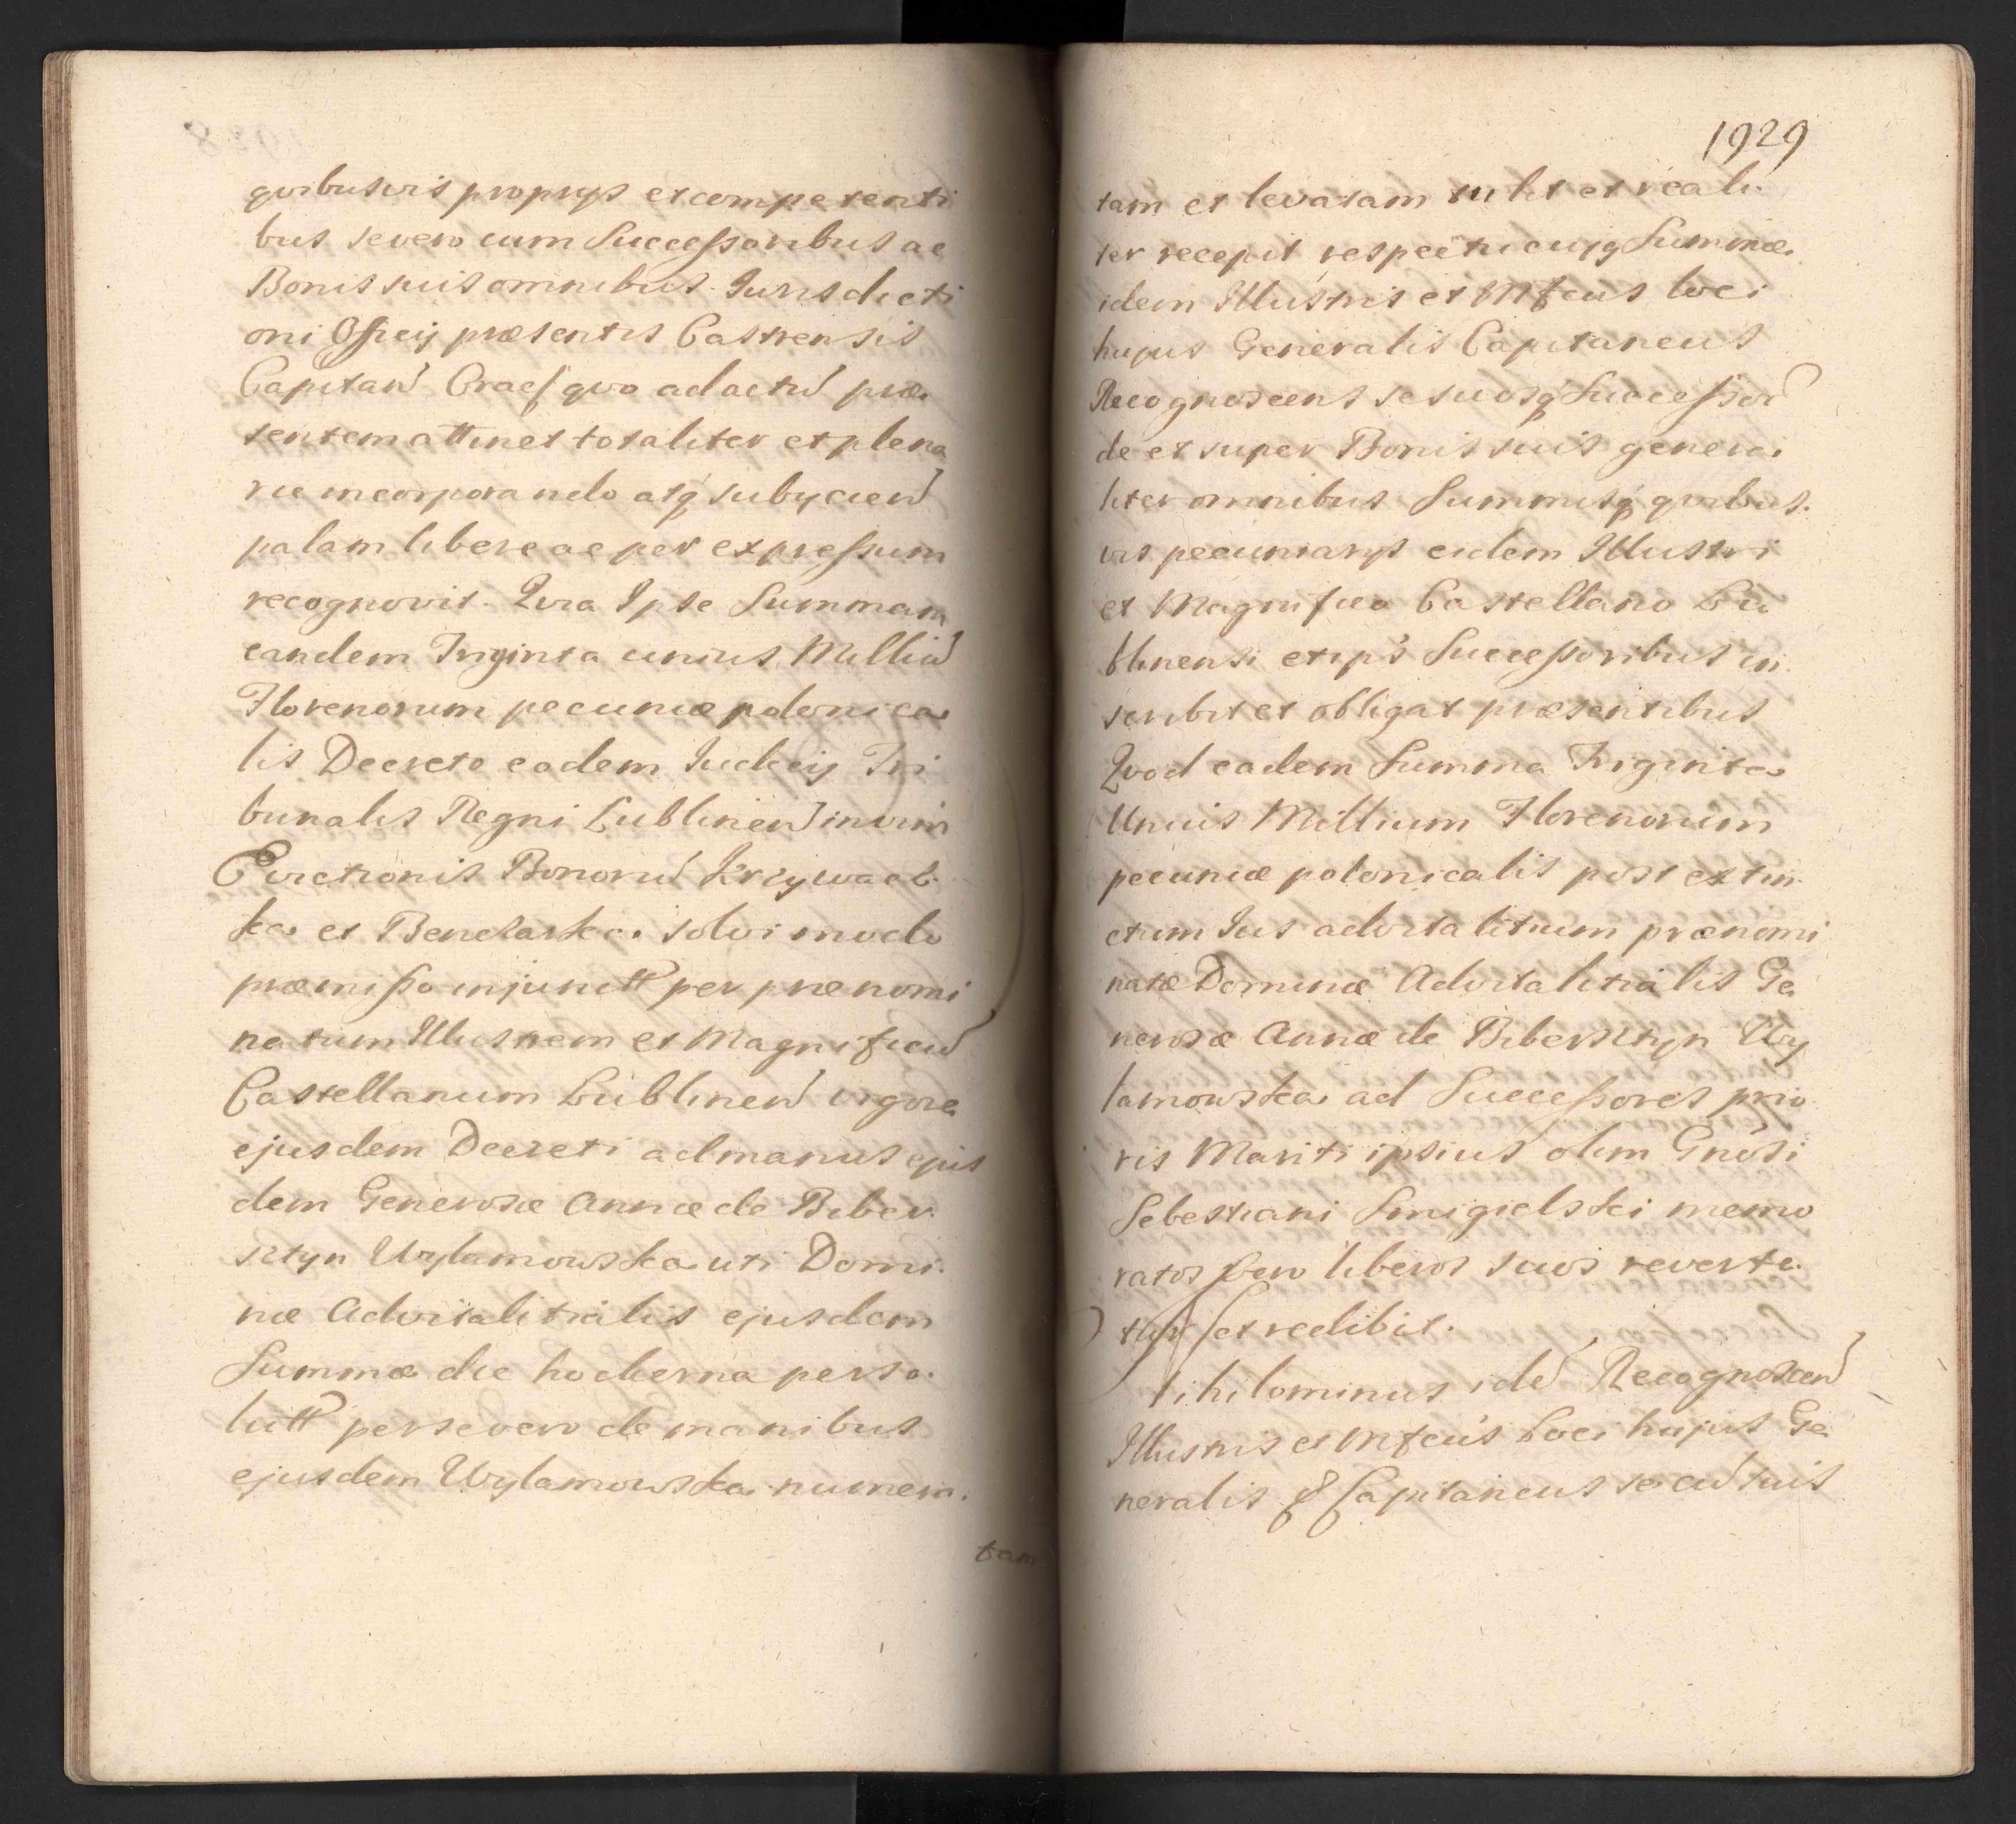 qvibusvis proprys et competenti
bus se vero cum Successoribus ac
Bonis suis omnibus Jurisdicti
oni Officij præsentis Castrensis
Capitan Crac qvo ad actu præ
sentem attinet totaliter et plena
rie incorporando atq subycien
palam libere ac per expressum
recognovit. Qvia Ipse Summam
eandem Triginta unius Milliu
Florenorum pecuniæ polonica
lis Decreto eodem Judicij Tri
bunalis Regni Lublinen in vim
Evictionis Bonoru Krzywacz
ka et Benczarka solvi modo
præmisso injunctt per prænomi
natum Illustrem et Magnificu
Castellanum Lublinen vigore
ejusdem Decreti ad manus ejus
dem Generosæ Annæ de Biber
sztyn Wylamowska uti Domi
næ Advitalitialis ejusdem
Summæ die hodierna perso
lutt per se vero de manibus
ejusdem Wylamowska numera
tam
1929
tam et levatam tulit et reali
ter recepit respectu cujq Summæ
idem Illustris et Mfcus loci
hujus Generalis Capitaneus
Recognoscens se suosq Successor
de et super Bonis suis genera
liter omnibus Summisq qvibus
vis pecuniarys eidem Illustri
et Magnifico Castellano Lu
blinensi et ips Successoribus in
scribit et obligat præsentibus
Qvod eadem Summa Triginta
Unius Millium Florenorum
pecuniæ polonicalis post extin
ctum Jus advitalitium prænomi
natæ Dominæ Advitalitialis Ge
nerosæ Annæ de Bibersztyn Wy
lamowska ad Successores prio
ris Mariti ipsius olim Gnosi
Sebestiani Smigielski memo
ratos vero liberos suos reverte
tur et redibit.
Nihilominus ide Recognoscen
Illustris et Mfcus Loci hujus Ge
neralis Capitaneus se cu suis